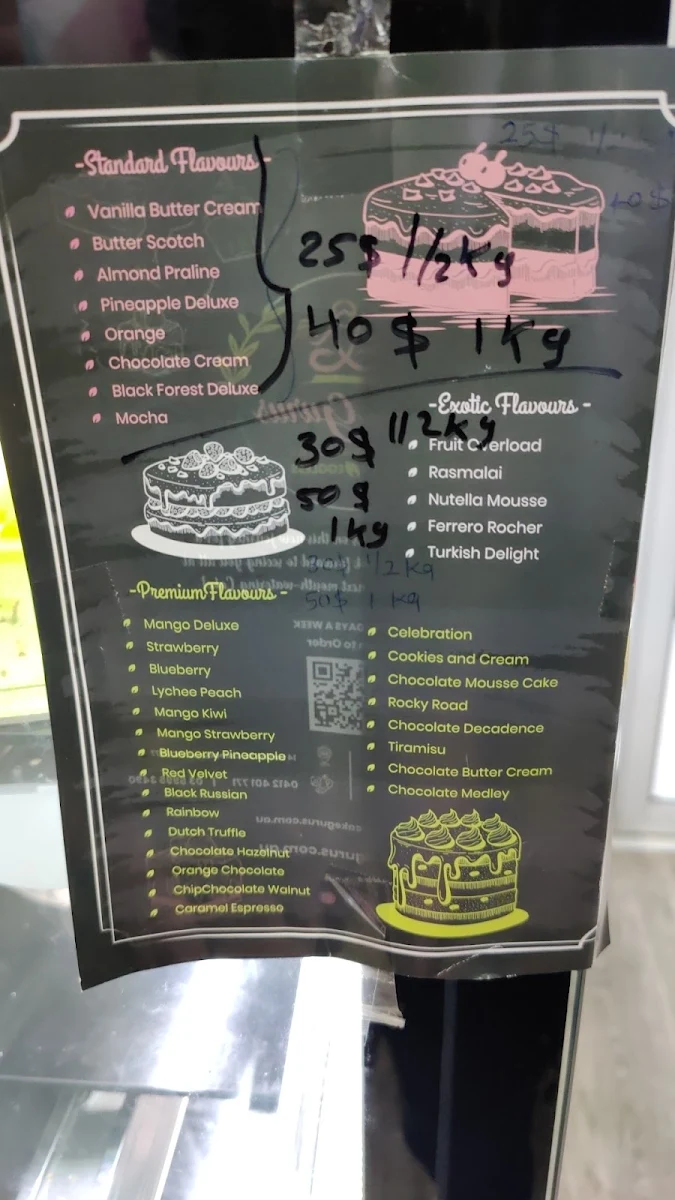 -Standard Flavours-
Vanilla Butter Cream
Butter Scotch
Almond Praline
Pineapple Deluxe
Orange
Chocolate Cream
Black Forest Deluxe
Mocha
25$ 1/2kg
40$ 1kg
25$ 1/
40$
-Exotic Flavours-
Fruit Overload
Rasmalai
Nutella Mousse
Ferrero Rocher
Turkish Delight
30$ 1/2kg
50$
1kg
30$ 1/2kg
50$ 1kg
-Premium Flavours-
Mango Deluxe
Strawberry
Blueberry
Lychee Peach
Mango Kiwi
Mango Strawberry
Blueberry Pineapple
Red Velvet
Black Russian
Rainbow
Dutch Truffle
Chocolate Hazelnut
Orange Chocolate
ChipChocolate Walnut
Caramel Espresso
Celebration
Cookies and Cream
Chocolate Mousse Cake
Rocky Road
Chocolate Decadence
Tiramisu
Chocolate Butter Cream
Chocolate Medley